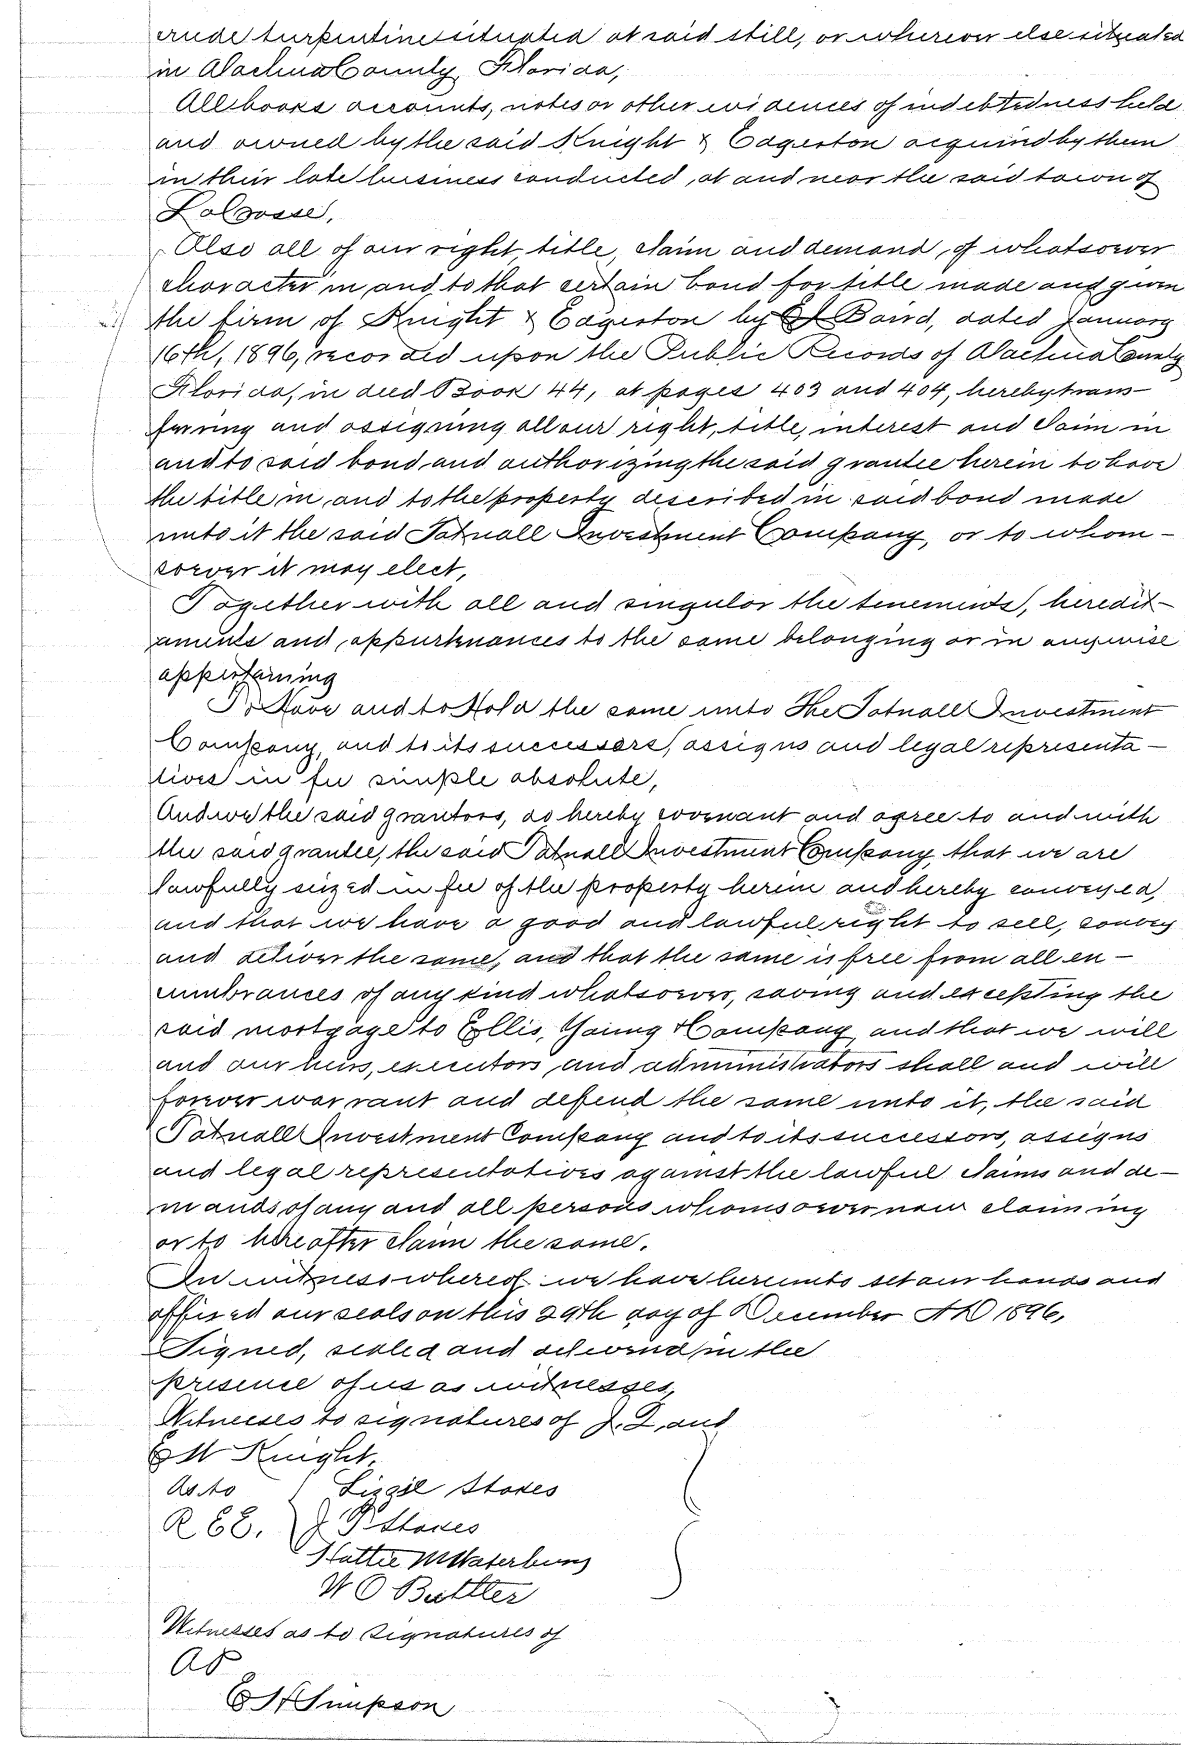 crude turpentine situated at said still, or wherever else situated
in Alachua County, Florida,
All books accounts, notes or other evidences of indebtedness held
and owned by the said Knight & Edgerton acquired by them
in their late business conducted, at and near the said town of
LaCrosse,
Also all of our right, title, claim and demand, of whatsoever
character in and to that certain bond for title made and given
the firm of Knight & Edgerton by Baird, dated January
16th, 1896, recorded upon the Public Records of Alachua County
Florida, in deed Book 44, at pages 403 and 404, hereby trans-
ferring and assigning all our right, title, interest and claim in
and to said bond and authorizing the said grantee herein to have
the title in and to the property described in said bond made
unto it the said Tatnall Investment Company, or to whom-
soever it may elect,
Together with all and singular the tenements, heredit-
aments and appurtenances to the same belonging or in anywise
appertaining
To Have and to Hold the same unto The Tatnall Investment
Company, and to its successors, assigns and legal representa-
tives in fee simple absolute,
And we the said grantors, do hereby covenant and agree to and with
the said grantee, the said Tatnall Investment Company, that we are
lawfully seized in fee of the property herein and hereby conveyed,
and that we have a good and lawful right to sell, convey
and deliver the same, and that the same is free from all en-
cumbrances of any kind whatsoever, saving and excepting the
said mortgage to Ellis, Young & Company, and that we will
and our heirs, executors and administrators shall and will
forever warrant and defend the same unto it, the said
Tatnall Investment Company and to its successors, assigns
and legal representatives against the lawful claims and de-
mands of any and all persons whomsoever now claiming
or to hereafter claim the same.
In witness whereof we have hereunto set our hands and
affixed our seals on this 29th day of December AD 1896,
Signed, sealed and delivered in the
presence of us as witnesses,
Witnesses to signatures of J. L. and
E W Knight,
As to Lizzie Stokes
R E E. J P Stokes
Hattie M Waterbury
W O Buttler
Witnesses as to signatures of
AP
E H Simpson